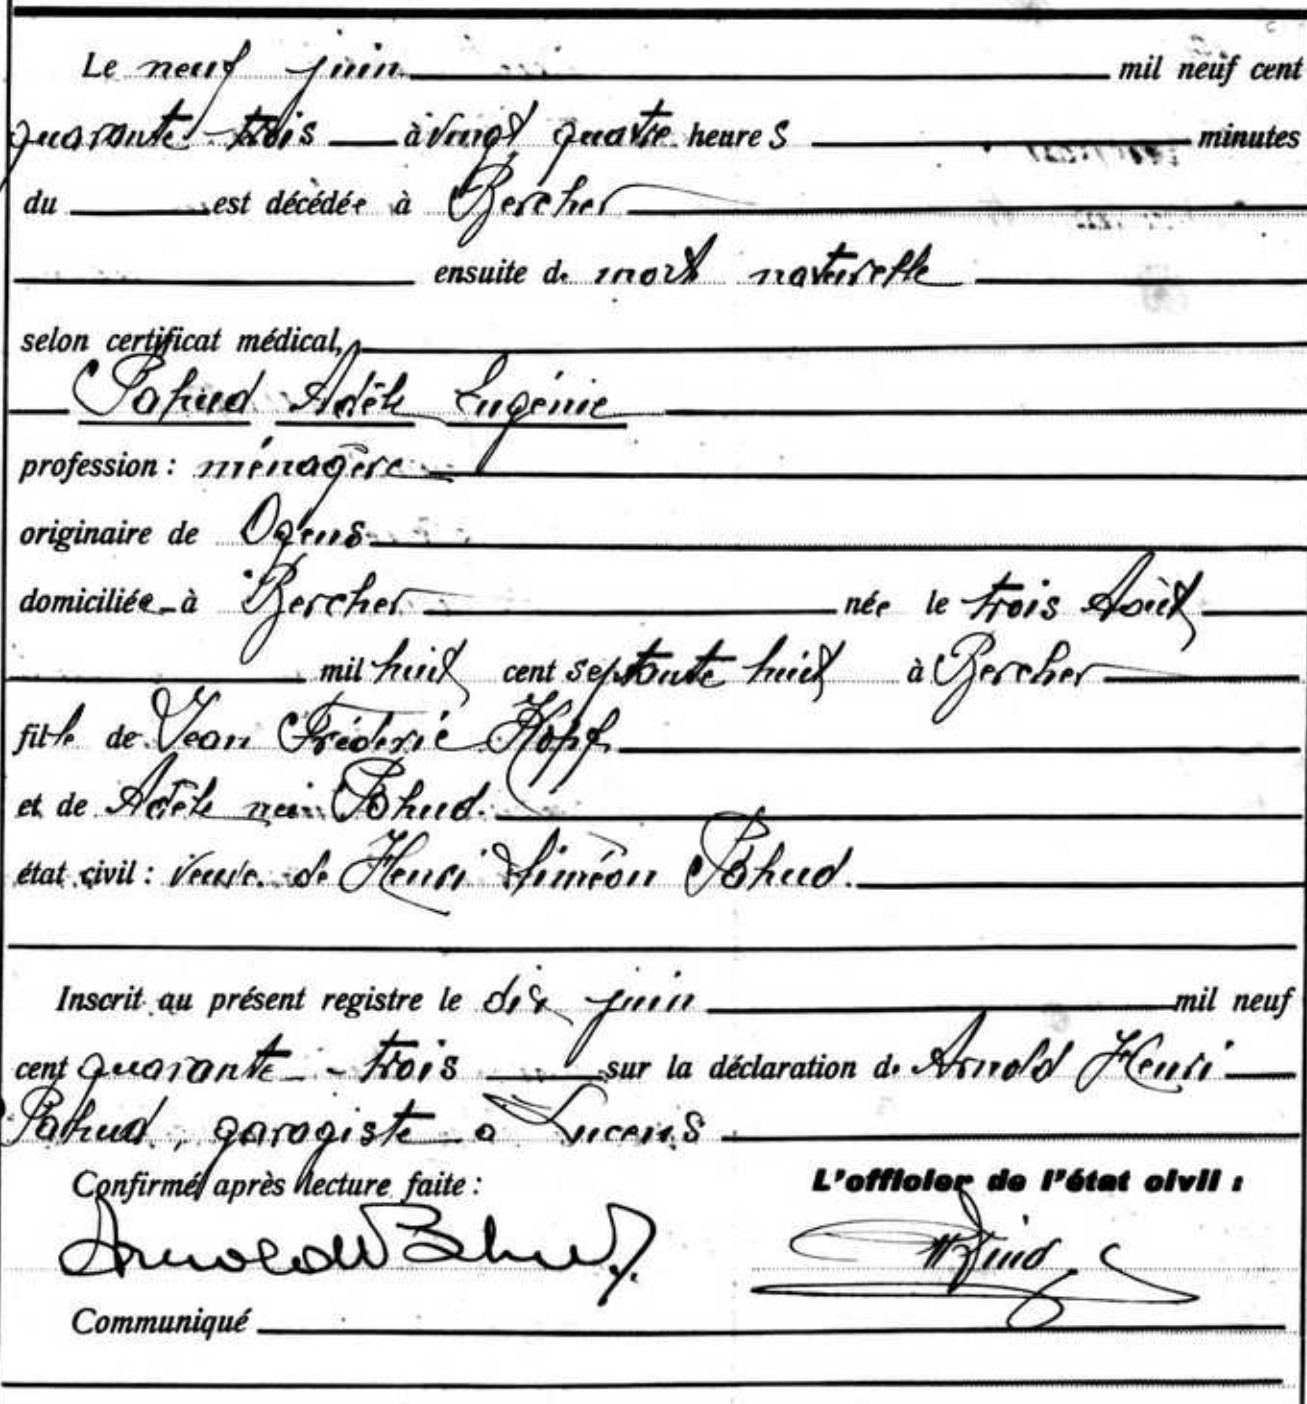 Le neuf juin mil neuf cent
quarante-trois à vingt quatre heures minutes
du est décédée à Bercher
ensuite de mort naturelle
selon certificat médical,
Pahud Adèle Eugénie
profession : ménagère
originaire de Ogens
domiciliée à Bercher née le trois Août
mil huit cent septante huit à Bercher
fille de Jean Frédéric Kopf
et de Adèle née Pahud.
état civil : veuve de Henri Siméon Pahud.
Inscrit au présent registre le dix juin mil neuf
cent quarante-trois sur la déclaration de Arnold Henri
Pahud, garagiste a Lucens
Confirmé après lecture faite : L'officier de l'état civil :
Arnold Pahud
Communiqué